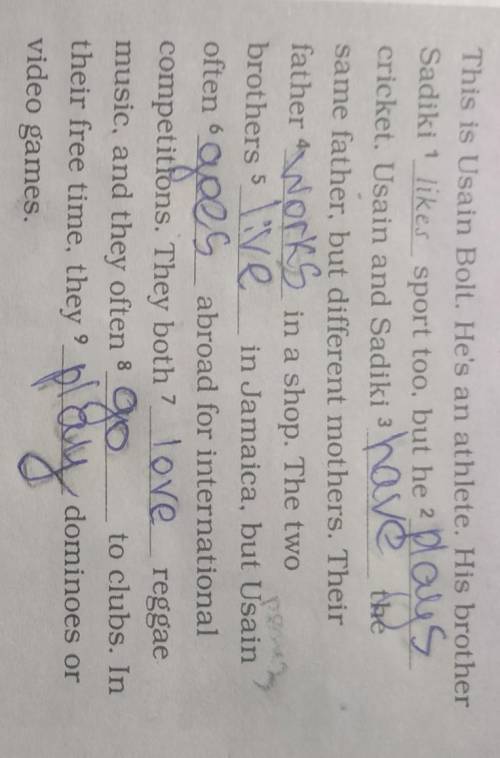 This is Usain Bolt. He's an athlete. His brother
Sadiki 1 likes sport too, but he 2 plays
cricket. Usain and Sadiki 3 have the
same father, but different mothers. Their
father 4 works in a shop. The two
brothers 5 live in Jamaica, but Usain
often 6 goes abroad for international
competitions. They both 7 love reggae
music, and they often 8 go to clubs. In
their free time, they 9 play dominoes or
video games.